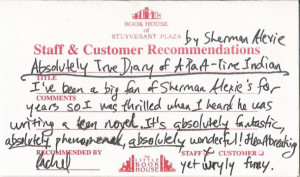 BOOK HOUSE
OF
STUYVESANT PLAZA
by Sherman Alexie
Staff & Customer Recommendations
Absolutely True Diary of A Part-Time Indian
TITLE
I've been a big fan of Sherman Alexie's for
COMMENTS
years so I was thrilled when I heard he was
writing a teen novel. It's absolutely fantastic,
absolutely phenomenal, absolutely wonderful! Heartbreaking
RECOMMENDED BY
STAFF
CUSTOMER
Rachel
yet wryly funny.
THE
LITTLE
BOOK
HOUSE